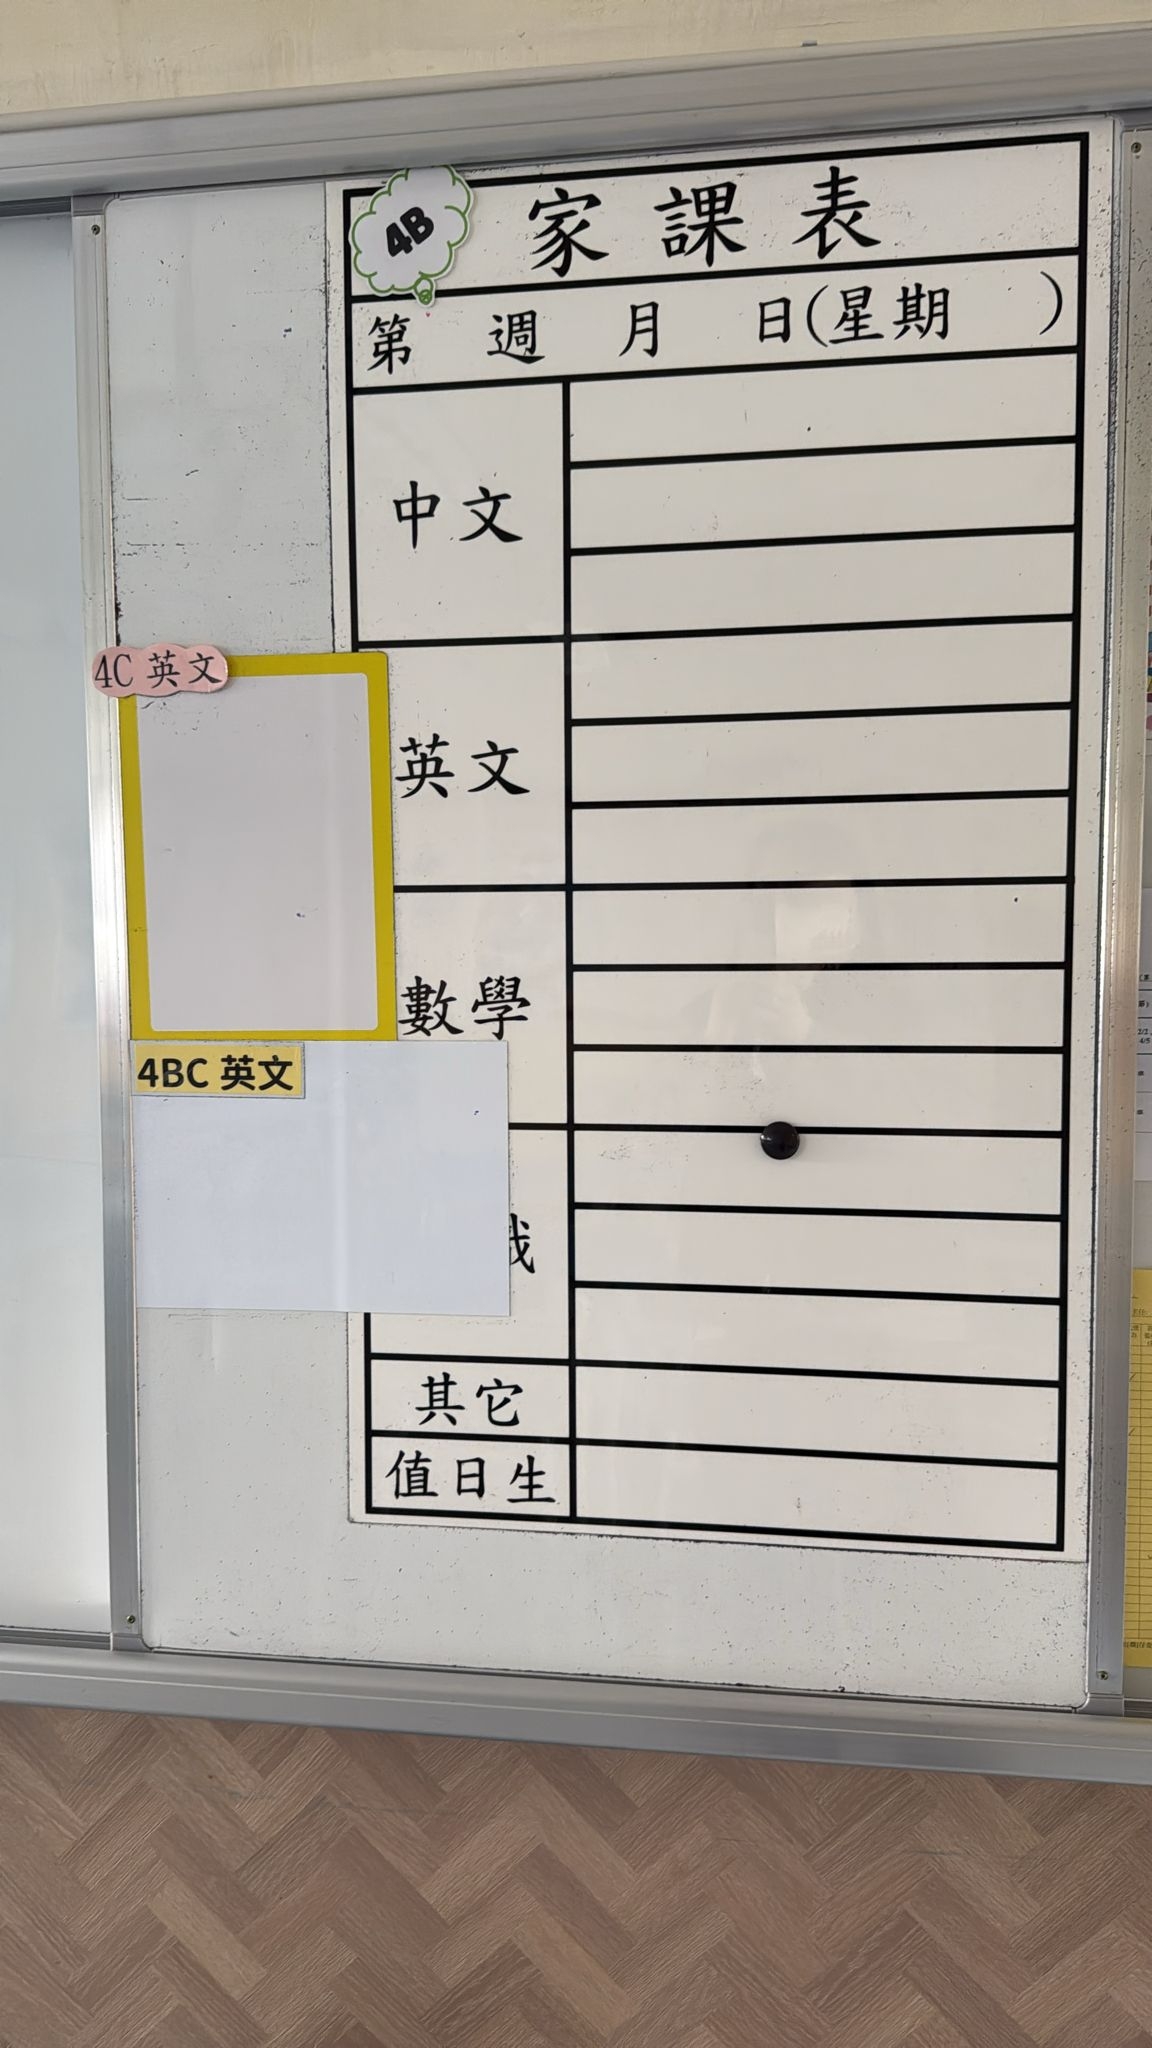 4B
家課表
第 週 月 日(星期 )
中文
4C 英文
英文
數學
4BC 英文
其它
值日生